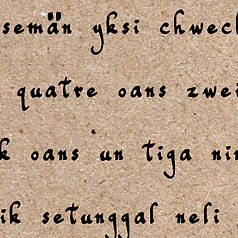 semän yksi chwech
quatre oans zwei
k oans un tiga nin
ik setunggal neli